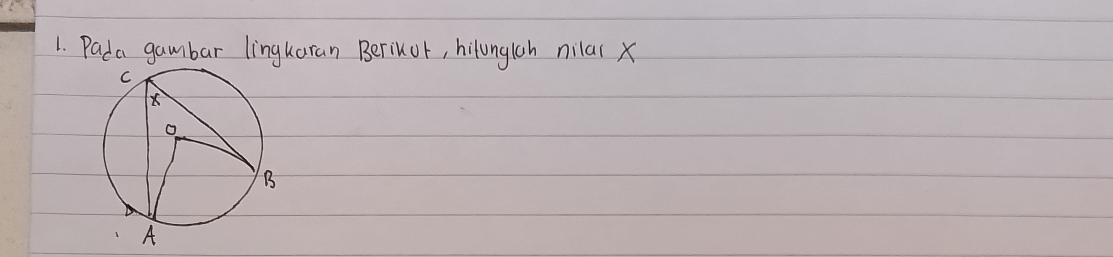 1. Pada gambar lingkaran Berikut, hitunglah nilai X
C
x
O
B
A